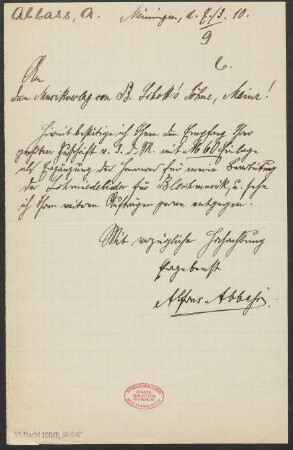 Abbass, A.
Meiningen, d. 7./3. 10.
9
6.
An
den Musikverlag von B. Schott's Söhne, Mainz!
Hiermit bestätige ich Ihnen den Empfang Ihrer
geehrten Zuschrift v. 5. d. M. mit M 60 Einlage
als Ergänzung des Honorars für meine Bearbeitung
der für Blasmusik, u. sehe
ich Ihren weiteren Aufträgen gern entgegen.
Mit vorzüglicher Hochachtung
Ergebenst
Alfons Abbass.